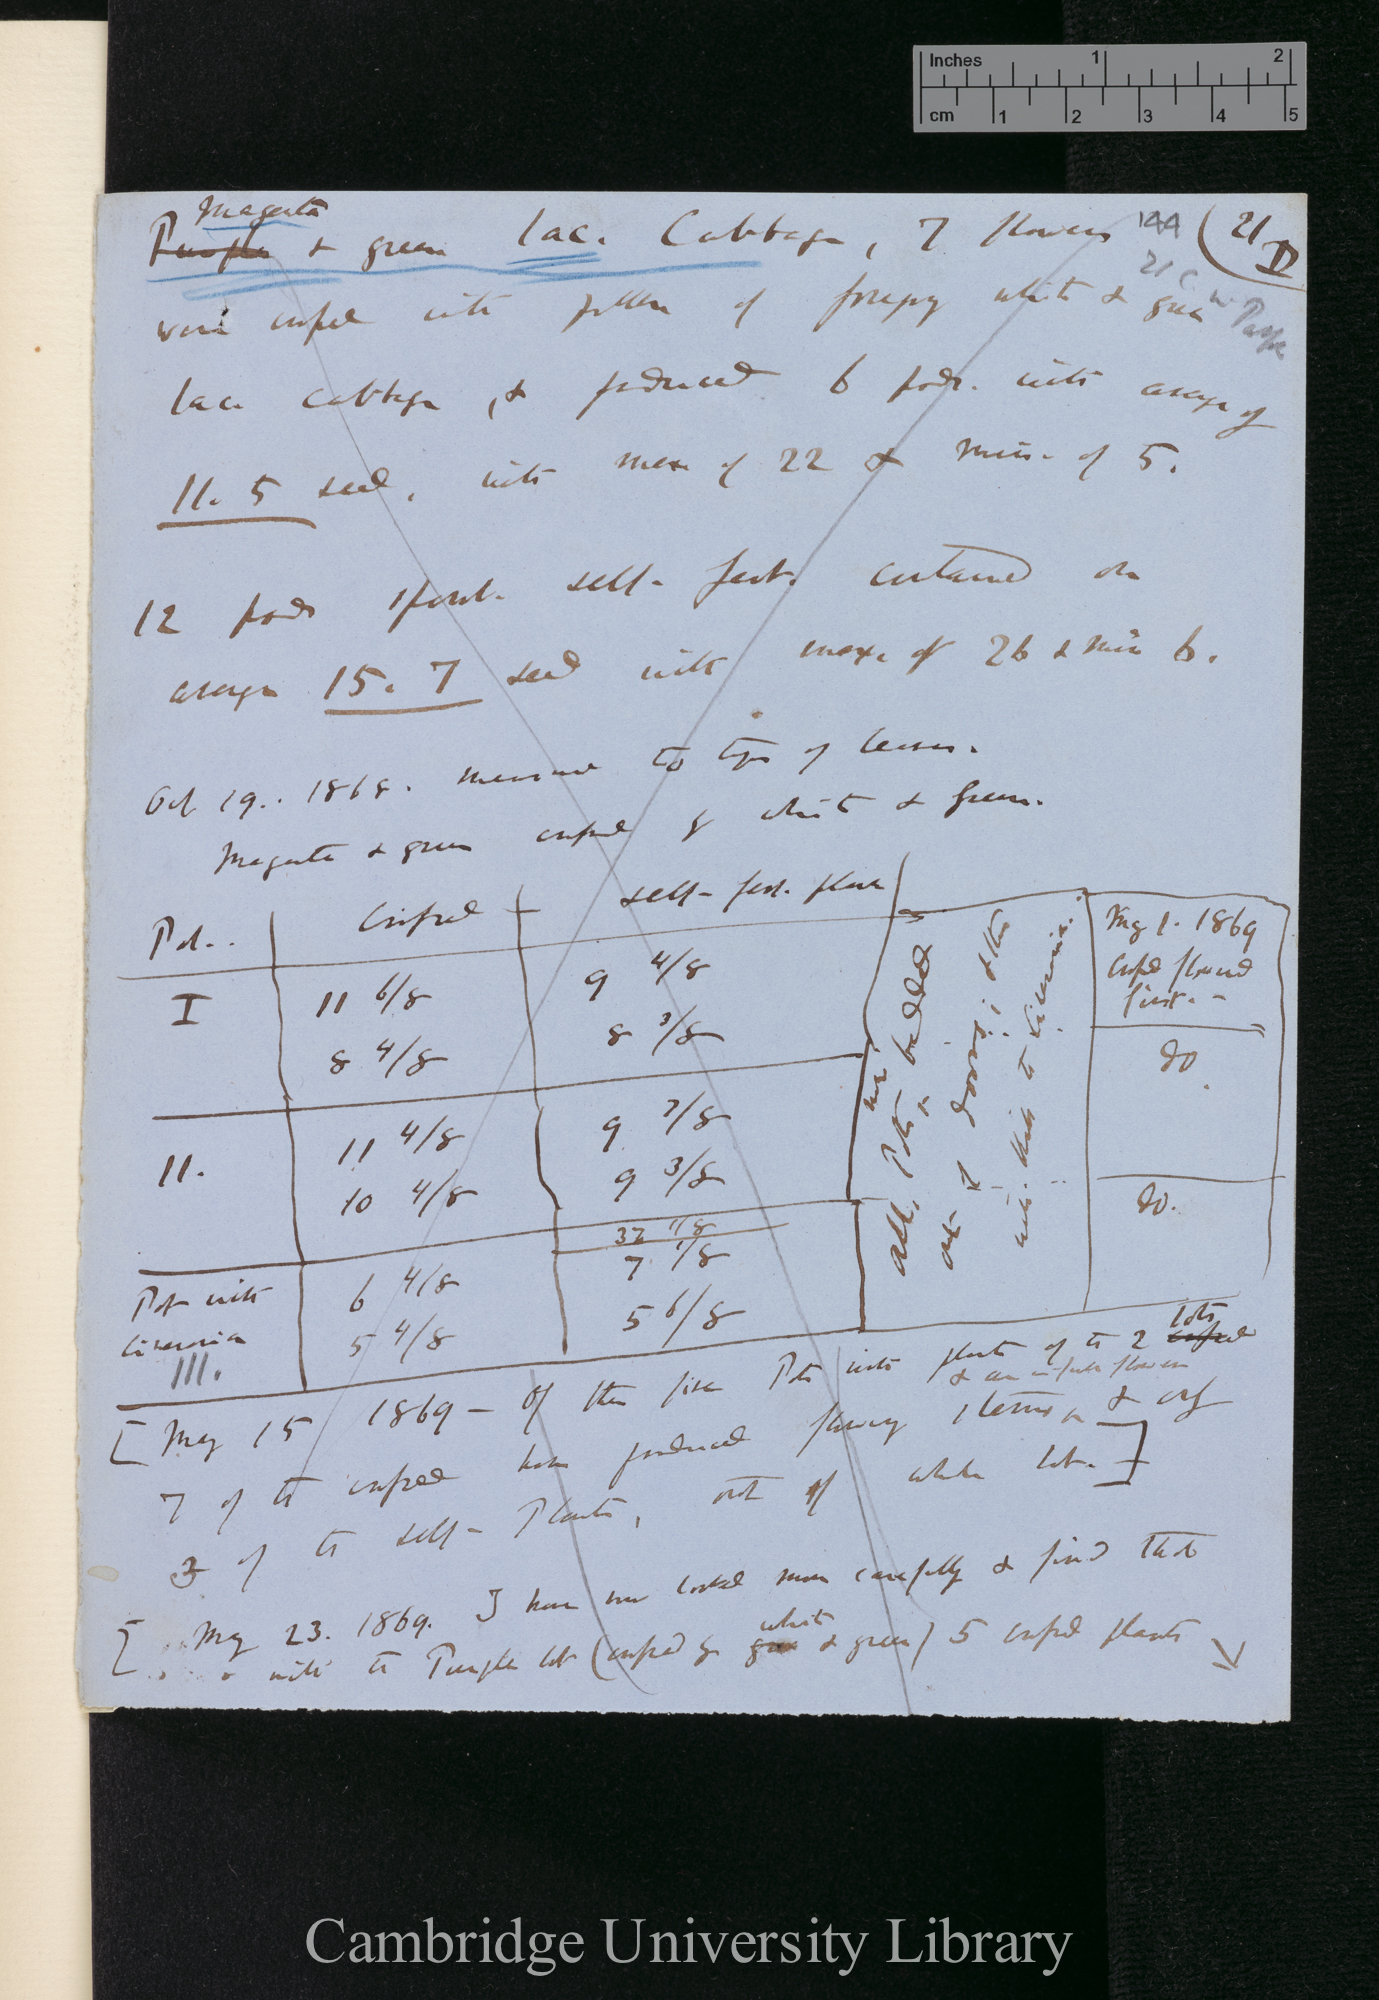 Inches 1 2
cm 1 2 3 4 5
Magenta 144 (21
Purple & green lac. Cabbage, 7 flowers D
21 C
were crossed with pollen of foregoing white & green
lac. Cabbage, & produced 6 pods. with average of
11.5 seed, with max of 22 & min. of 5.
12 pods spont. self-fert. contained on
average 15.7 seed with max. of 26 & min 6.
Oct 19.. 1868. measured to tips of leaves.
Magenta & green crossed by white & Green.
Pot.. Crossed self-fert. plants
I 11 6/8 9 4/8
8 4/8 8 3/8
II. 11 4/8 9 7/8
10 4/8 9 3/8
32 17/8
Pot with 6 4/8 7 1/8
Cineraria 5 4/8 5 6/8
III.
All Pots now bedded
out
with this to Cineraria.
May 1. 1869
Crossed flowered
first. -
do
do.
[May 15 1869 — Of the five Pots with plants of the 2 crossed lots
7 of the crossed have produced flowering stems & are in full flower & only
3 of the self-Plants, out of whole lot.]
[May 23. 1869. I have now looked more carefully & find that
with the Purple lot (crossed by green white & green) 5 crossed plants
Cambridge University Library